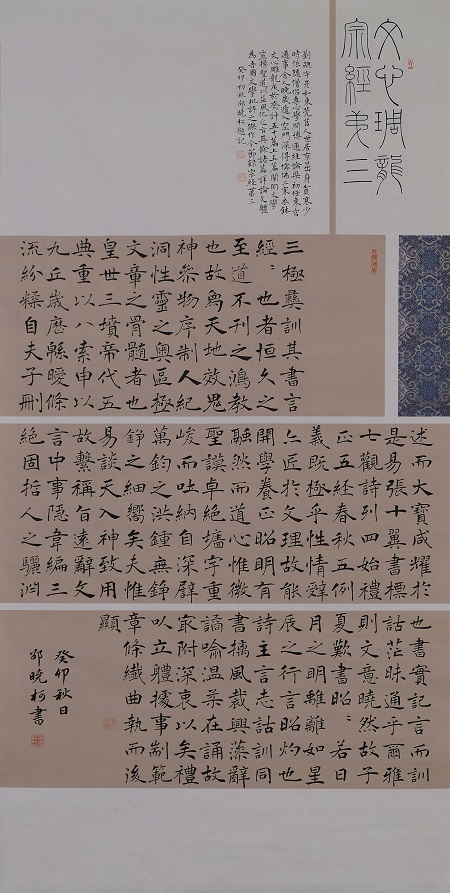 文心琱龍
宗經弟三
劉勰字彥和東莞莒人世居京口身貧寒少
時依隨僧侶專心學問博通經論梁初任東宮
通事舍人晚歲遁入空門深得儒佛二家衣鉢
文心雕龍成於齊計五十篇上五篇闡明文學
宣揚聖道以益風化之旨其餘諸篇詳論文體
為吾國文學批評之傑作今節錄宗經第三
癸卯初秋邵曉柯題記
三極彝訓其書言
經〻也者恒久之
至道不刊之鴻教
也故象天地效鬼
神參物序制人紀
洞性靈之奧區極
文章之骨髓者也
皇世三墳帝代五
典重以八索申以
九丘歲歷緜曖條
流紛糅自夫子刪
述而大寶咸耀於
是易張十翼書標
七觀詩列四始禮
正五經春秋五例
義既極乎性情辭
亦匠於文理故能
開學養正昭明有
融然而道心惟微
聖謨卓絕牆宇重
峻而吐納自深譬
萬鈞之洪鍾無錚
錚之細響矣夫惟
易談天入神致用
故繫稱旨遠辭文
言中事隱韋編三
絕固哲人之驪淵
也書實記言而訓
詁茫昧通乎爾雅
則文意曉然故子
夏歎書昭〻若日
月之明離離如星
辰之行言昭灼也
詩主言志詁訓同
書摛風裁興藻辭
譎喻溫柔在誦故
冣附深衷以矣禮
以立體據事制範
章條纖曲執而後
顯
癸卯秋日
邵曉柯書